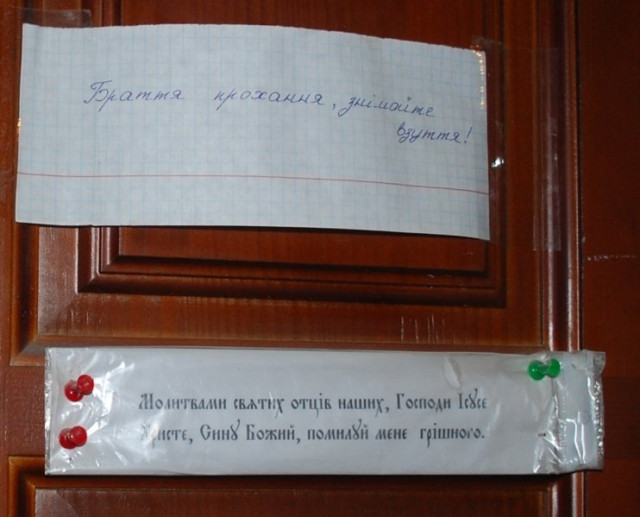 Браття прохання, знімайте
взуття!
Молитвами святих отців наших, Господи Ісусе
Христе, Сину Божий, помилуй мене грішного.